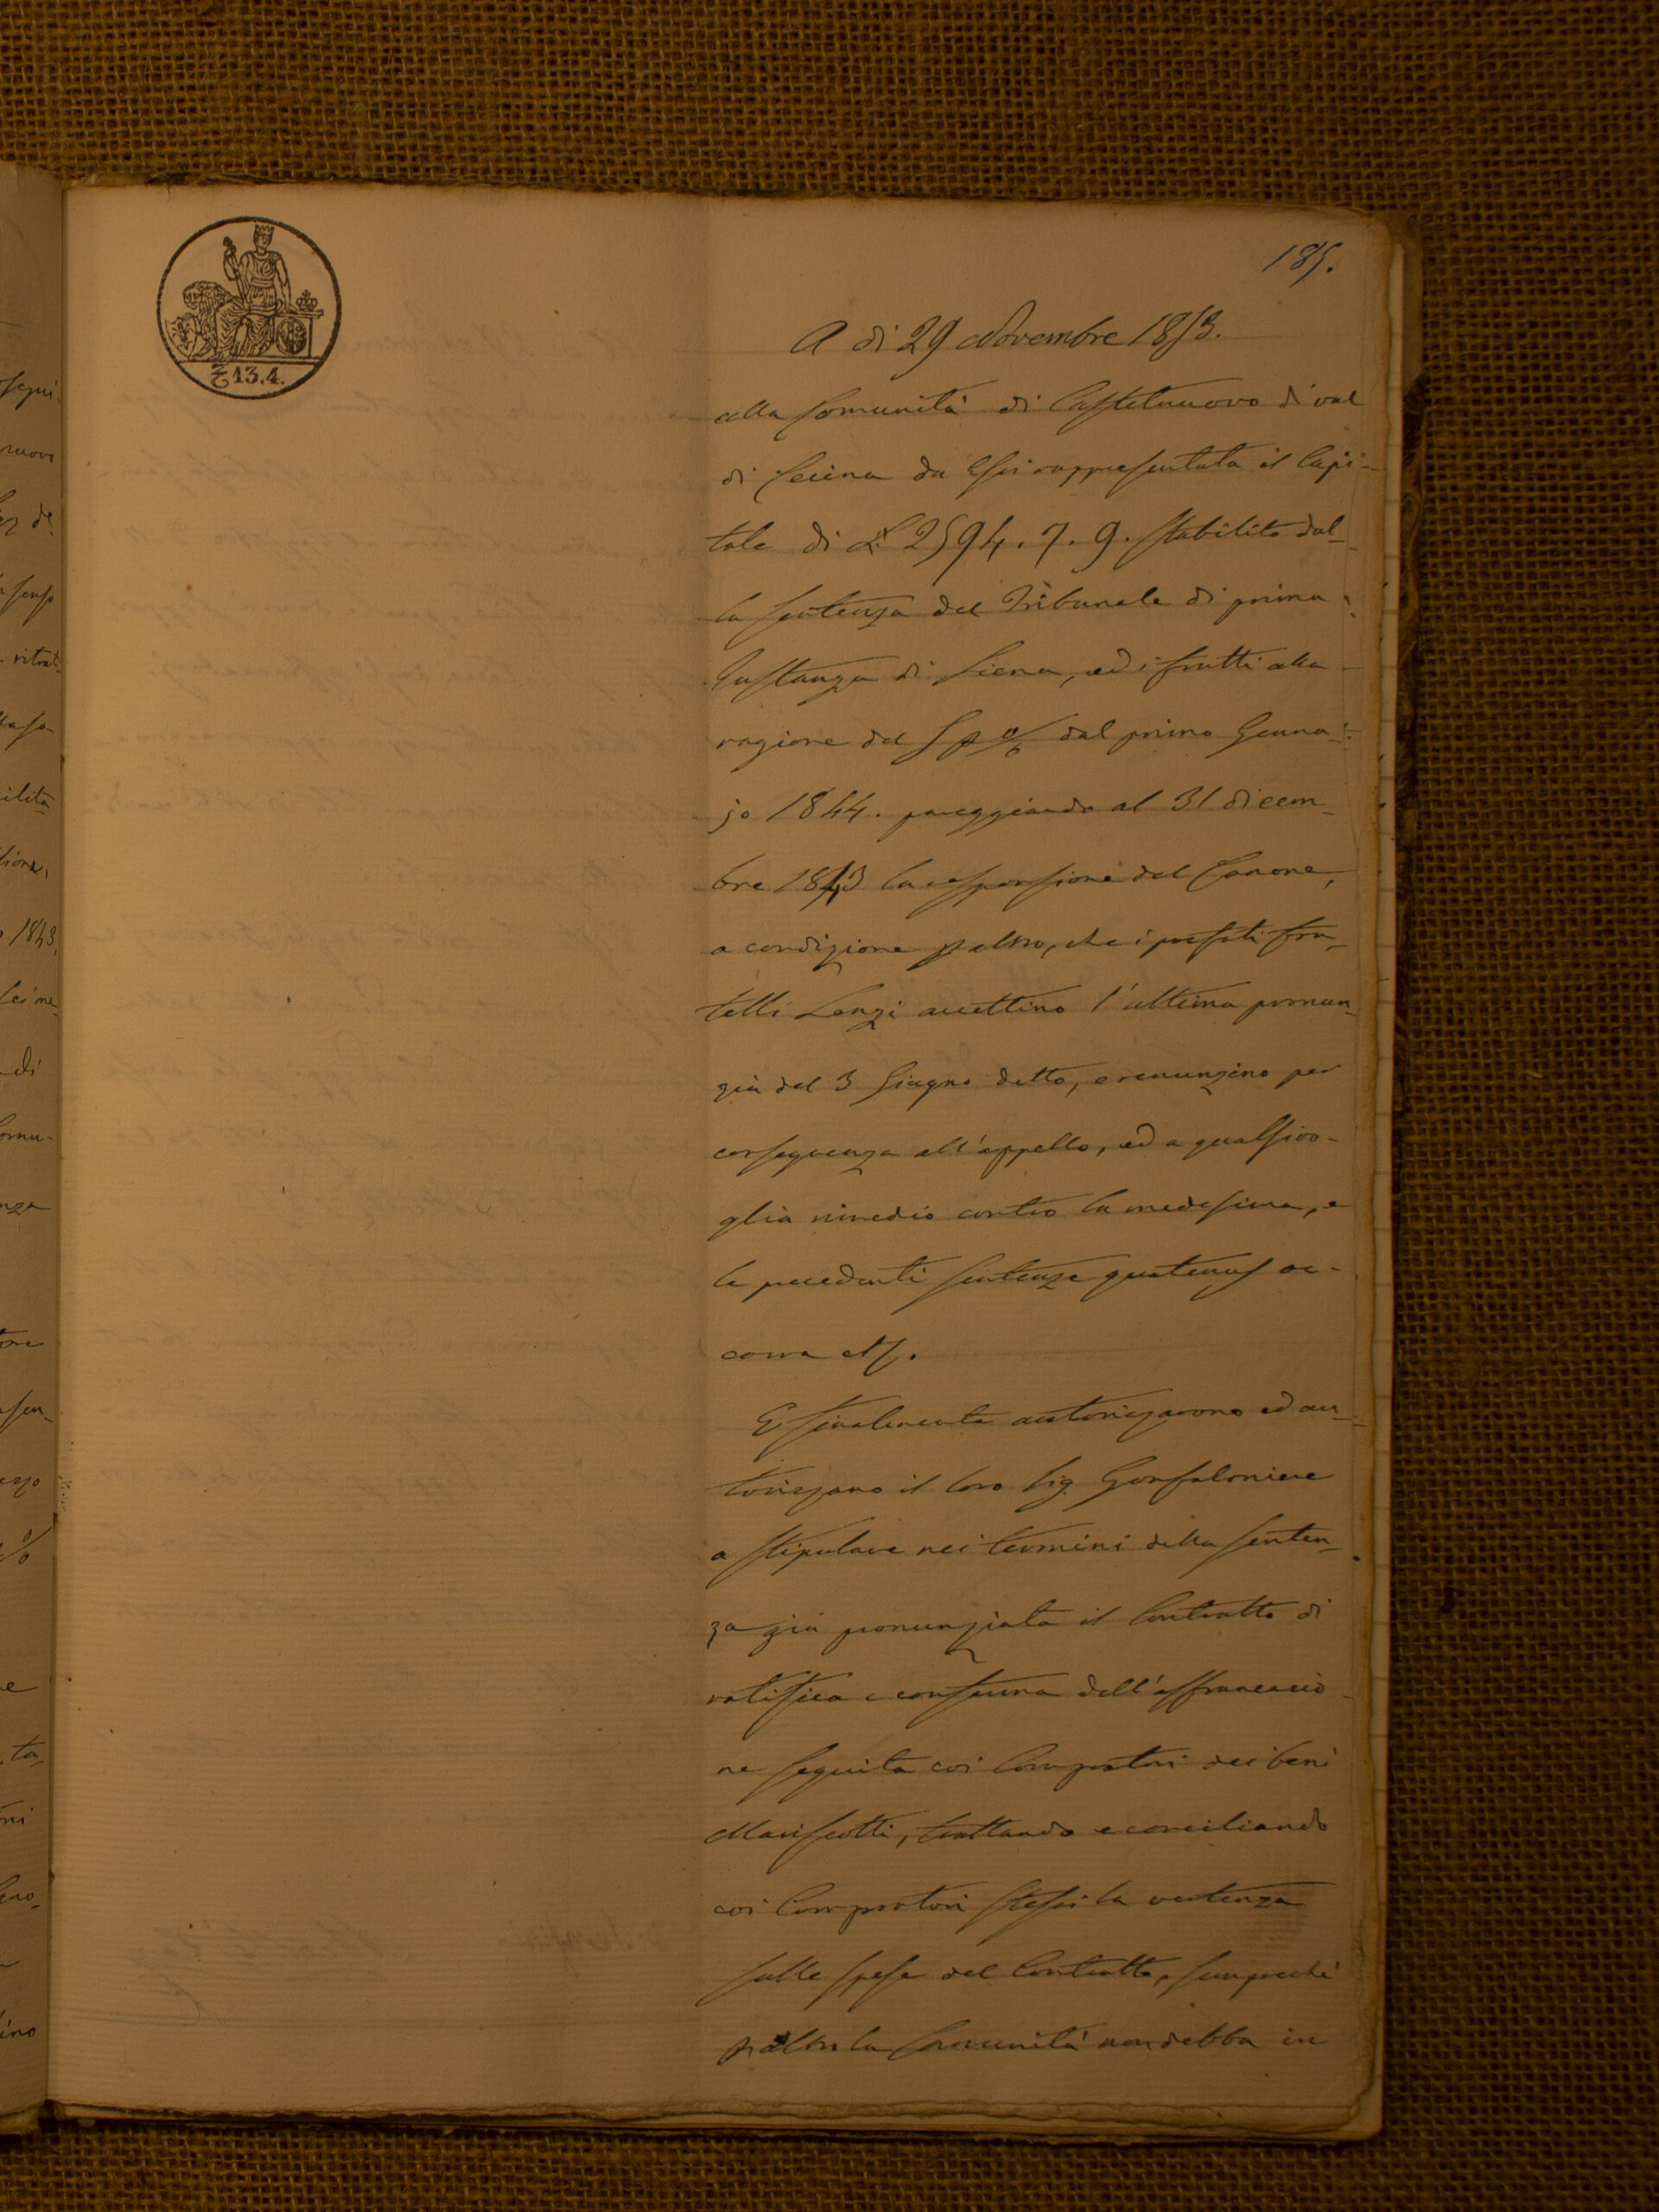 185.
13.4.
A di 29 Novembre 1853.
alla Comunità di Castelnuovo di val
di Cecina da Essi rappresentata il Capi-
tale di £ 2594. 7. 9. stabilito dal-
la sentenza del Tribunale di prima
Instanza di Siena, ed i frutti alla
ragione del 5 p % dal primo Genna-
jo 1844. pareggiando al 31 dicem-
bre 1843 la responsione del Canone,
a condizione p altro, che i prefati fra-
telli Lenzi accettino l'ultima pronun-
zia del 3 Giugno detto, e renunzino per
conseguenza all'appello, ed a qualsivo-
glia rimedio contro la medesima, e
le precedenti sentenze quatenus oc-
corra
E finalmente autorizzarono ed au-
torizzano il loro Sig. Gonfaloniere
a stipulare nei termini della senten-
za già pronunziata il Contratto di
ratifica e conferma dell'affrancazio-
ne seguita coi Compratori dei beni
Mariscotti, trattando e conciliando
coi Compratori stessi la vertenza
sulle spese del Contratto, sempreché
p altro la Comunità non debba in
segui-
nuovo
di
ritrat-
ilità
1843,
di
Comu-
%